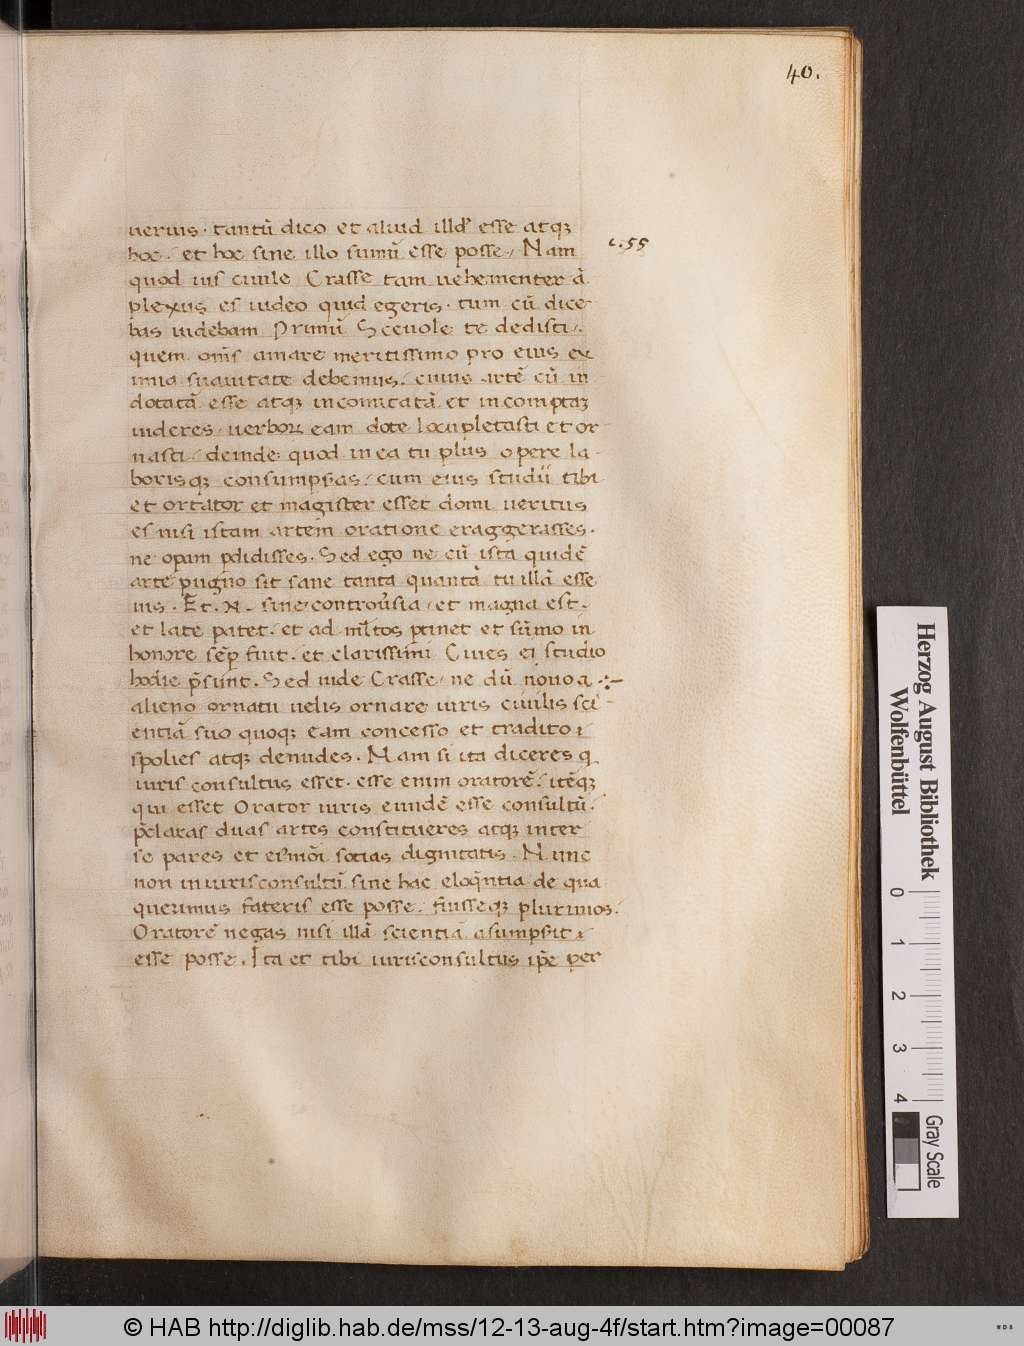 40.
uerius · tantū dico et aliud illḋ esse atqȝ
hoc · et hoc sine illo sumū esse posse / Nam
c. 55
quod ius ciuile Crasse tam uehementer ā
plexus es uideo quid egeris · tum cū dice
bas uidebam Primū Sceuole te dedisti /
quem om̄s amare meritissimo pro eius ex
imia suauitate debemus / cuius artē cū in
dotatā esse atqȝ incomitatā et incomptaȝ
uideres / uerboꝝ eam dote locupletasti et or
nasti / deinde quod in ea tu plus opere la
borisqȝ consumpsas / cum eius studii tibi
et ortator et magister esset domi ueritus
es nisi istam artem oratione exaggerasses ·
ne opam ꝑdidisses · Sed ego ne cū ista quidē
arte pugno sit sane tanta quantā tu illā esse
uis · Et · N · sine controu̾sia / et magna est ·
et late patet · et ad ml̄tos ꝑtinet et sūmo in
honore sēp fuit · et clarissimi Ciues ei studio
hodie p̄sunt · Sed uide Crasse / ne dū nouo &
alieno ornatu uelis ornare iuris ciuilis sci
entiā suo quoqȝ eam concesso et tradito
spolies atqȝ denudes · Nam si ita diceres q
iuris consultus esset · esse enim oratorē / itēqȝ
qui esset Orator iuris eundē esse consultū ·
p̄claras duas artes constitueres atqȝ inter
se pares et eiusmōi socias dignitatis · Nunc
non in iurisconsultū sine hac eloq̄ntia de qua
querimus fateris esse posse · fuisseqȝ plurimos ·
Oratorē negas nisi illā scientiā asumpsit
esse posse · Ita et tibi iurisconsultus ip̄e per
Herzog August Bibliothek
Wolfenbüttel
0 1 2 3 4
Gray Scale
© HAB http://diglib.hab.de/mss/12-13-aug-4f/start.htm?image=00087